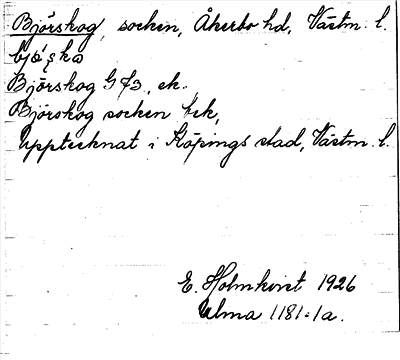 Björskog, socken, Åkerbo hd, Västm. l.
Björskog G43, ek.
Björskog socken fsk,
Upptecknat i Köpings stad, Västm. l.
E. Holmkvist 1926
Ulma 1181:1a.